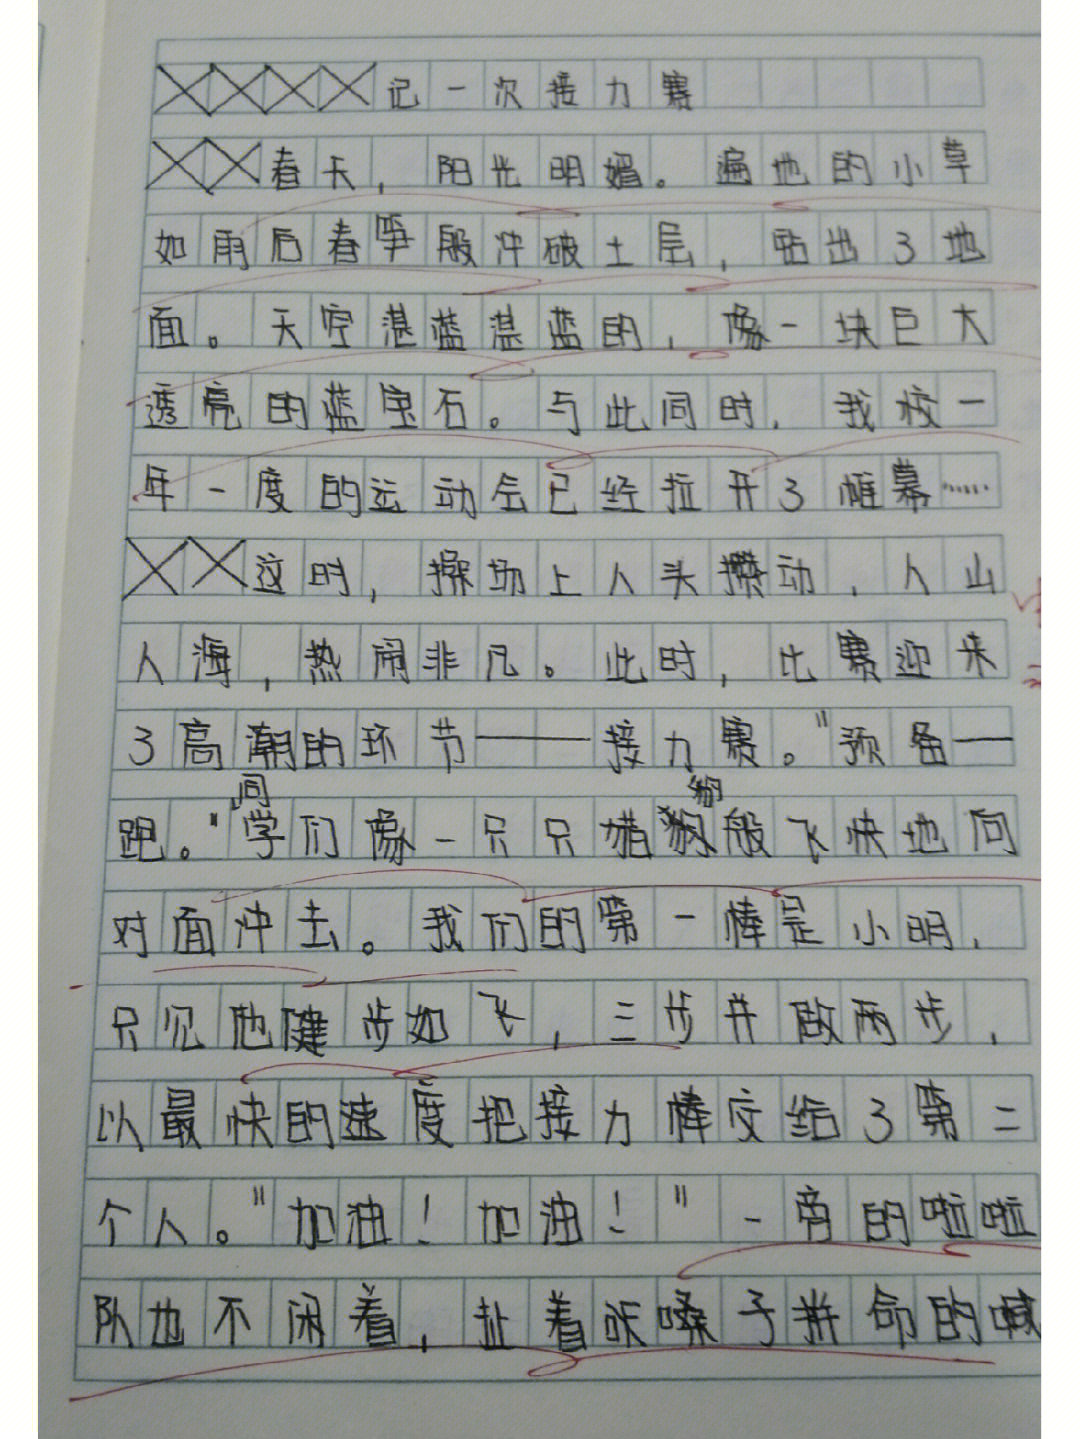 记一次接力赛
春天，阳光明媚。遍地的小草
如雨后春笋般冲破土层，钻出了地
面。天空湛蓝湛蓝的，像一块巨大
透亮的蓝宝石。与此同时，我校一
年一度的运动会已经拉开了帷幕……
这时，操场上人头攒动，人山
人海，热闹非凡。此时，比赛迎来
了高潮的环节——接力赛。"预备—
跑。"同学们像一只只猎豹般飞快地向
对面冲去。我们的第一棒是小明，
只见他健步如飞，三步并做两步，
以最快的速度把接力棒交给了第二
个人。"加油！加油！"一旁的啦啦
队也不闲着，扯着嗓子拼命的喊